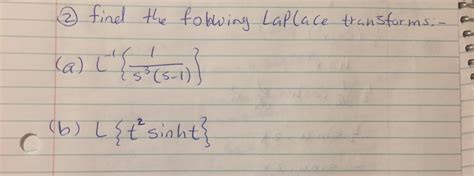 ② find the follwing Laplace transforms:-
(a) L⁻¹{1/(s³(s-1))}
(b) L{t² sinht}